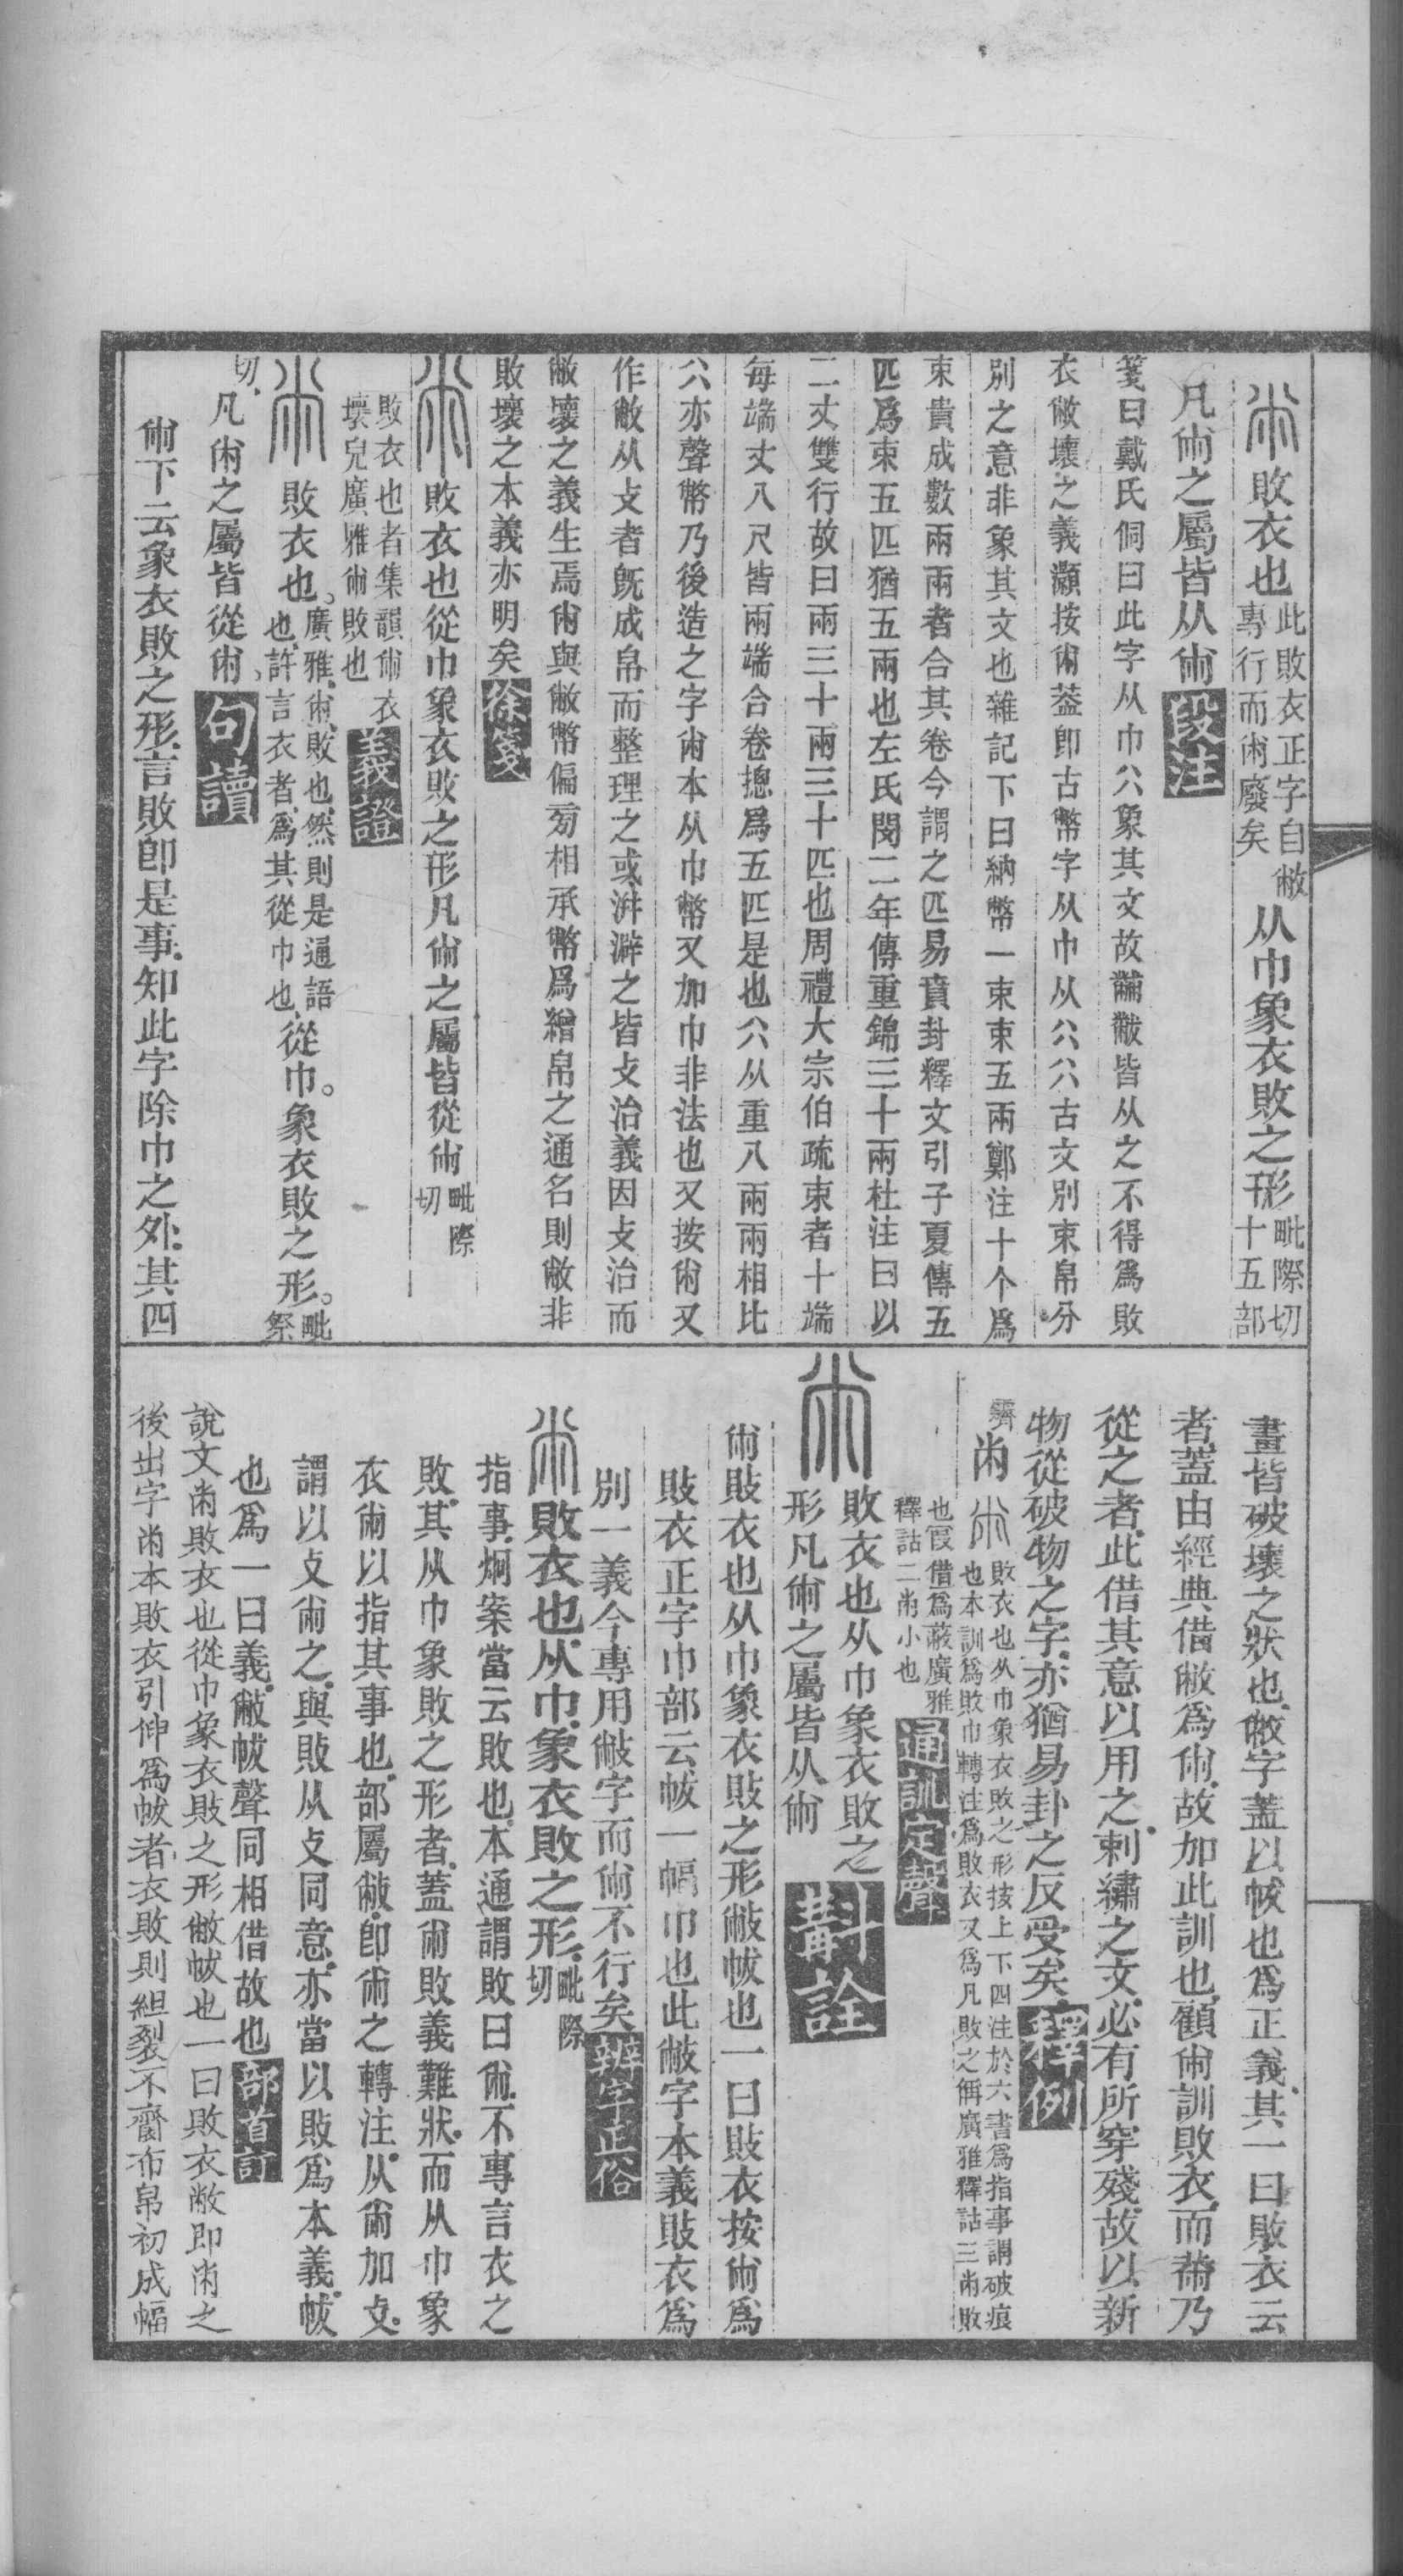 㡀敗衣也此敗衣正字自敝專行而㡀廢矣从巾象衣敗之形毗際切十五部
凡㡀之屬皆从㡀段注
箋曰戴氏侗曰此字从巾八象其文故黼黻皆从之不得爲敗
衣敝壞之義灝按㡀葢卽古幣字从巾从八八古文別束帛分
別之意非象其文也雜記下曰納幣一束束五兩鄭注十个爲
束貴成數兩兩者合其卷今謂之匹易賁封釋文引子夏傳五
匹爲束五匹猶五兩也左氏閔二年傳重錦三十兩杜注曰以
二丈雙行故曰兩三十兩三十匹也周禮大宗伯疏束者十端
每端丈八尺皆兩端合卷摠爲五匹是也八从重八兩兩相比
八亦聲幣乃後造之字㡀本从巾幣又加巾非法也又按㡀又
作敝从攴者旣成帛而整理之或洴澼之皆攴治義因攴治而
敝壞之義生焉㡀與敝幣偏旁相承幣爲繒帛之通名則敝非
敗壞之本義亦明矣徐箋
㡀敗衣也從巾象衣敗之形凡㡀之屬皆從㡀毗際切
敗衣也者集韻㡀衣壞皃廣雅㡀敗也義證
㡀敗衣也。廣雅、㡀、敗也、然則是通語也、許言衣者、爲其從巾也、從巾。象衣敗之形。毗祭
切、凡㡀之屬皆從㡀、句讀
㡀下云象衣敗之形、言敗卽是事、知此字除巾之外、其四
畫皆破壞之狀也、敝字蓋以帗也爲正義、其一曰敗衣云
者、蓋由經典借敝爲㡀、故加此訓也、顧㡀訓敗衣、而黹乃
從之者、此借其意以用之、刺繡之文、必有所穿殘、故以新
物從破物之字、亦猶易卦之反受矣釋例
霽㡀㡀敗衣也从巾象衣敗之形按上下四注於六書爲指事謂破痕也本訓爲敗巾轉注爲敗衣又爲凡敗之偁廣雅釋詁三㡀敗
也叚借爲蔽廣雅釋詁二㡀小也通訓定聲
㡀敗衣也从巾象衣敗之形凡㡀之屬皆从㡀斠詮
㡀敗衣也从巾象衣敗之形敝帗也一曰敗衣按㡀爲
敗衣正字巾部云帗一幅巾也此敝字本義敗衣爲
別一義今專用敝字而㡀不行矣辨字正俗
㡀敗衣也、从巾、象衣敗之形、毗際切
指事、炯案當云敗也、本通謂敗曰㡀、不專言衣之
敗、其从巾象敗之形者、蓋㡀敗義難狀、而从巾象
衣㡀以指其事也、部屬敝、卽㡀之轉注、从㡀加攴、
謂以攴㡀之、與敗从攴同意、亦當以敗爲本義、帗
也爲一曰義、敝帗聲同相借故也部首訂
說文㡀敗衣也從巾象衣敗之形敝帗也一曰敗衣敝即㡀之
後出字㡀本敗衣引伸爲帗者衣敗則組裂不齊布帛初成幅